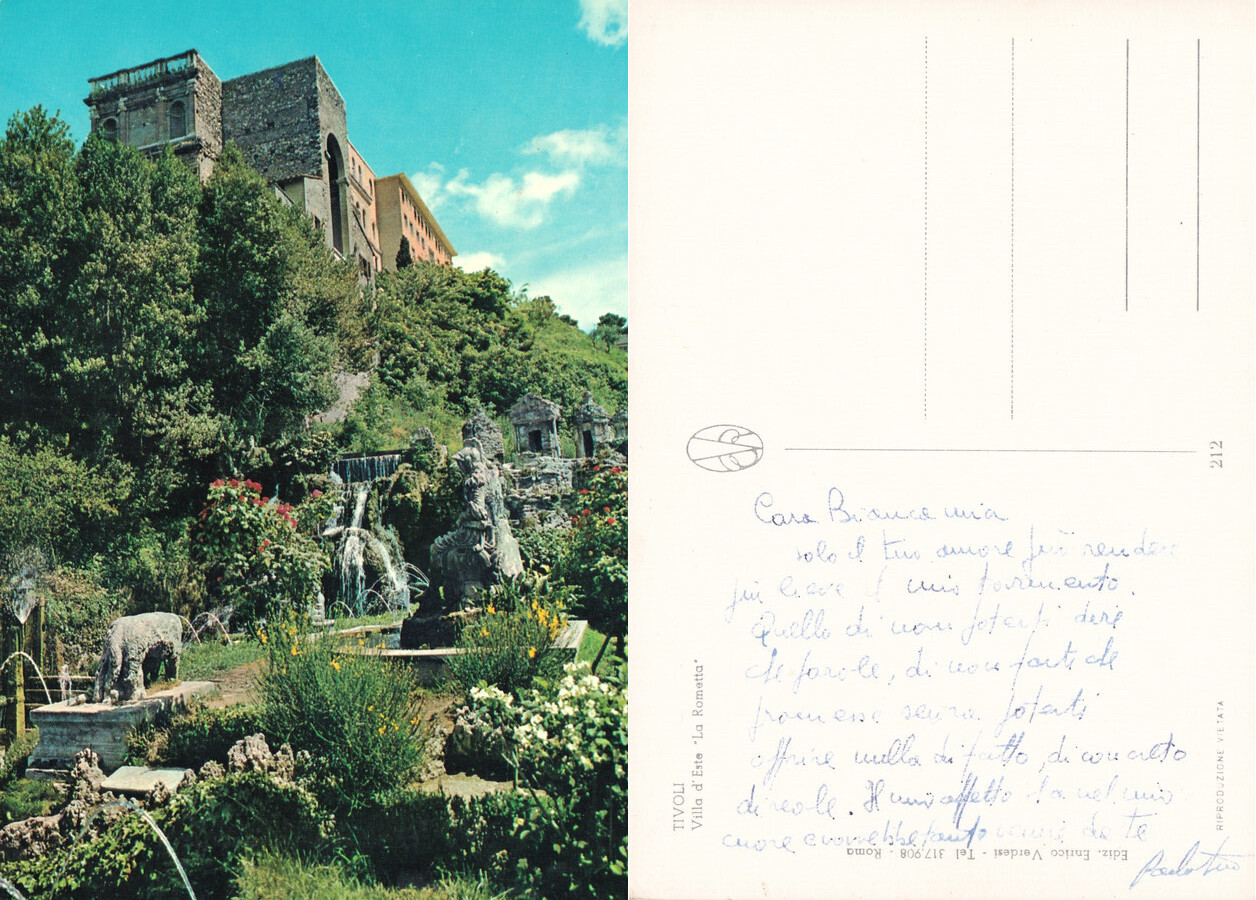 Cara Bianca mia
solo il tuo amore può rendere
più lieve il mio tormento.
Quello di non poterti dire
che parole, di non farti che
promesse senza poterti
offrire nulla di fatto, di concreto
di reale. Il mio affetto sta nel mio
cuore e vorrebbe tanto venire da te
Paolo tuo
TIVOLI
Villa d'Este "La Rometta"
212
RIPRODUZIONE VIETATA
Ediz. Enrico Verdesi - Tel 317.908 - Roma